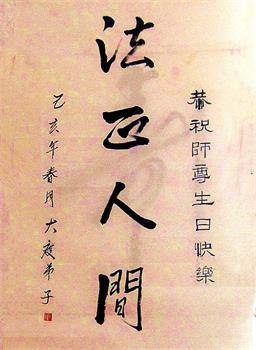 恭祝師尊生日快樂
法正人間
乙亥年春月 大慶弟子